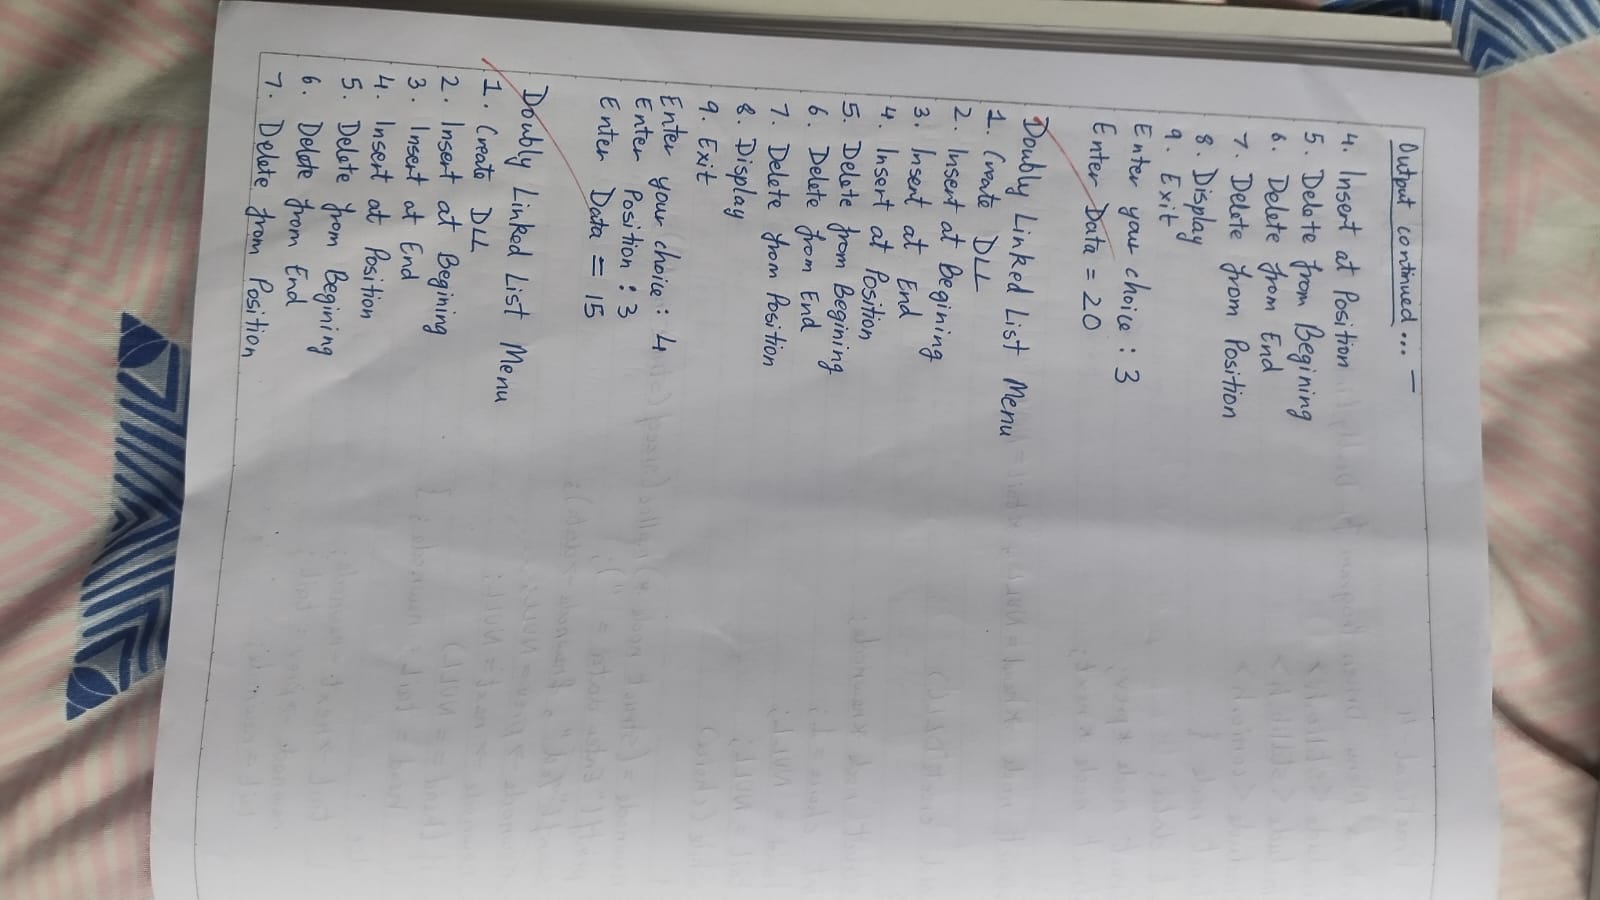 Output continued... -
4. Insert at Position
5. Delete from Begining
6. Delete from End
7. Delete from Position
8. Display
9. Exit
Enter your choice : 3
Enter Data = 20
Doubly Linked List Menu
1. Create DLL
2. Insert at Begining
3. Insert at End
4. Insert at Position
5. Delete from Begining
6. Delete from End
7. Delete from Position
8. Display
9. Exit
Enter your choice : 4
Enter Position : 3
Enter Data = 15
Doubly Linked List Menu
1. Create DLL
2. Insert at Begining
3. Insert at End
4. Insert at Position
5. Delete from Begining
6. Delete from End
7. Delete from Position